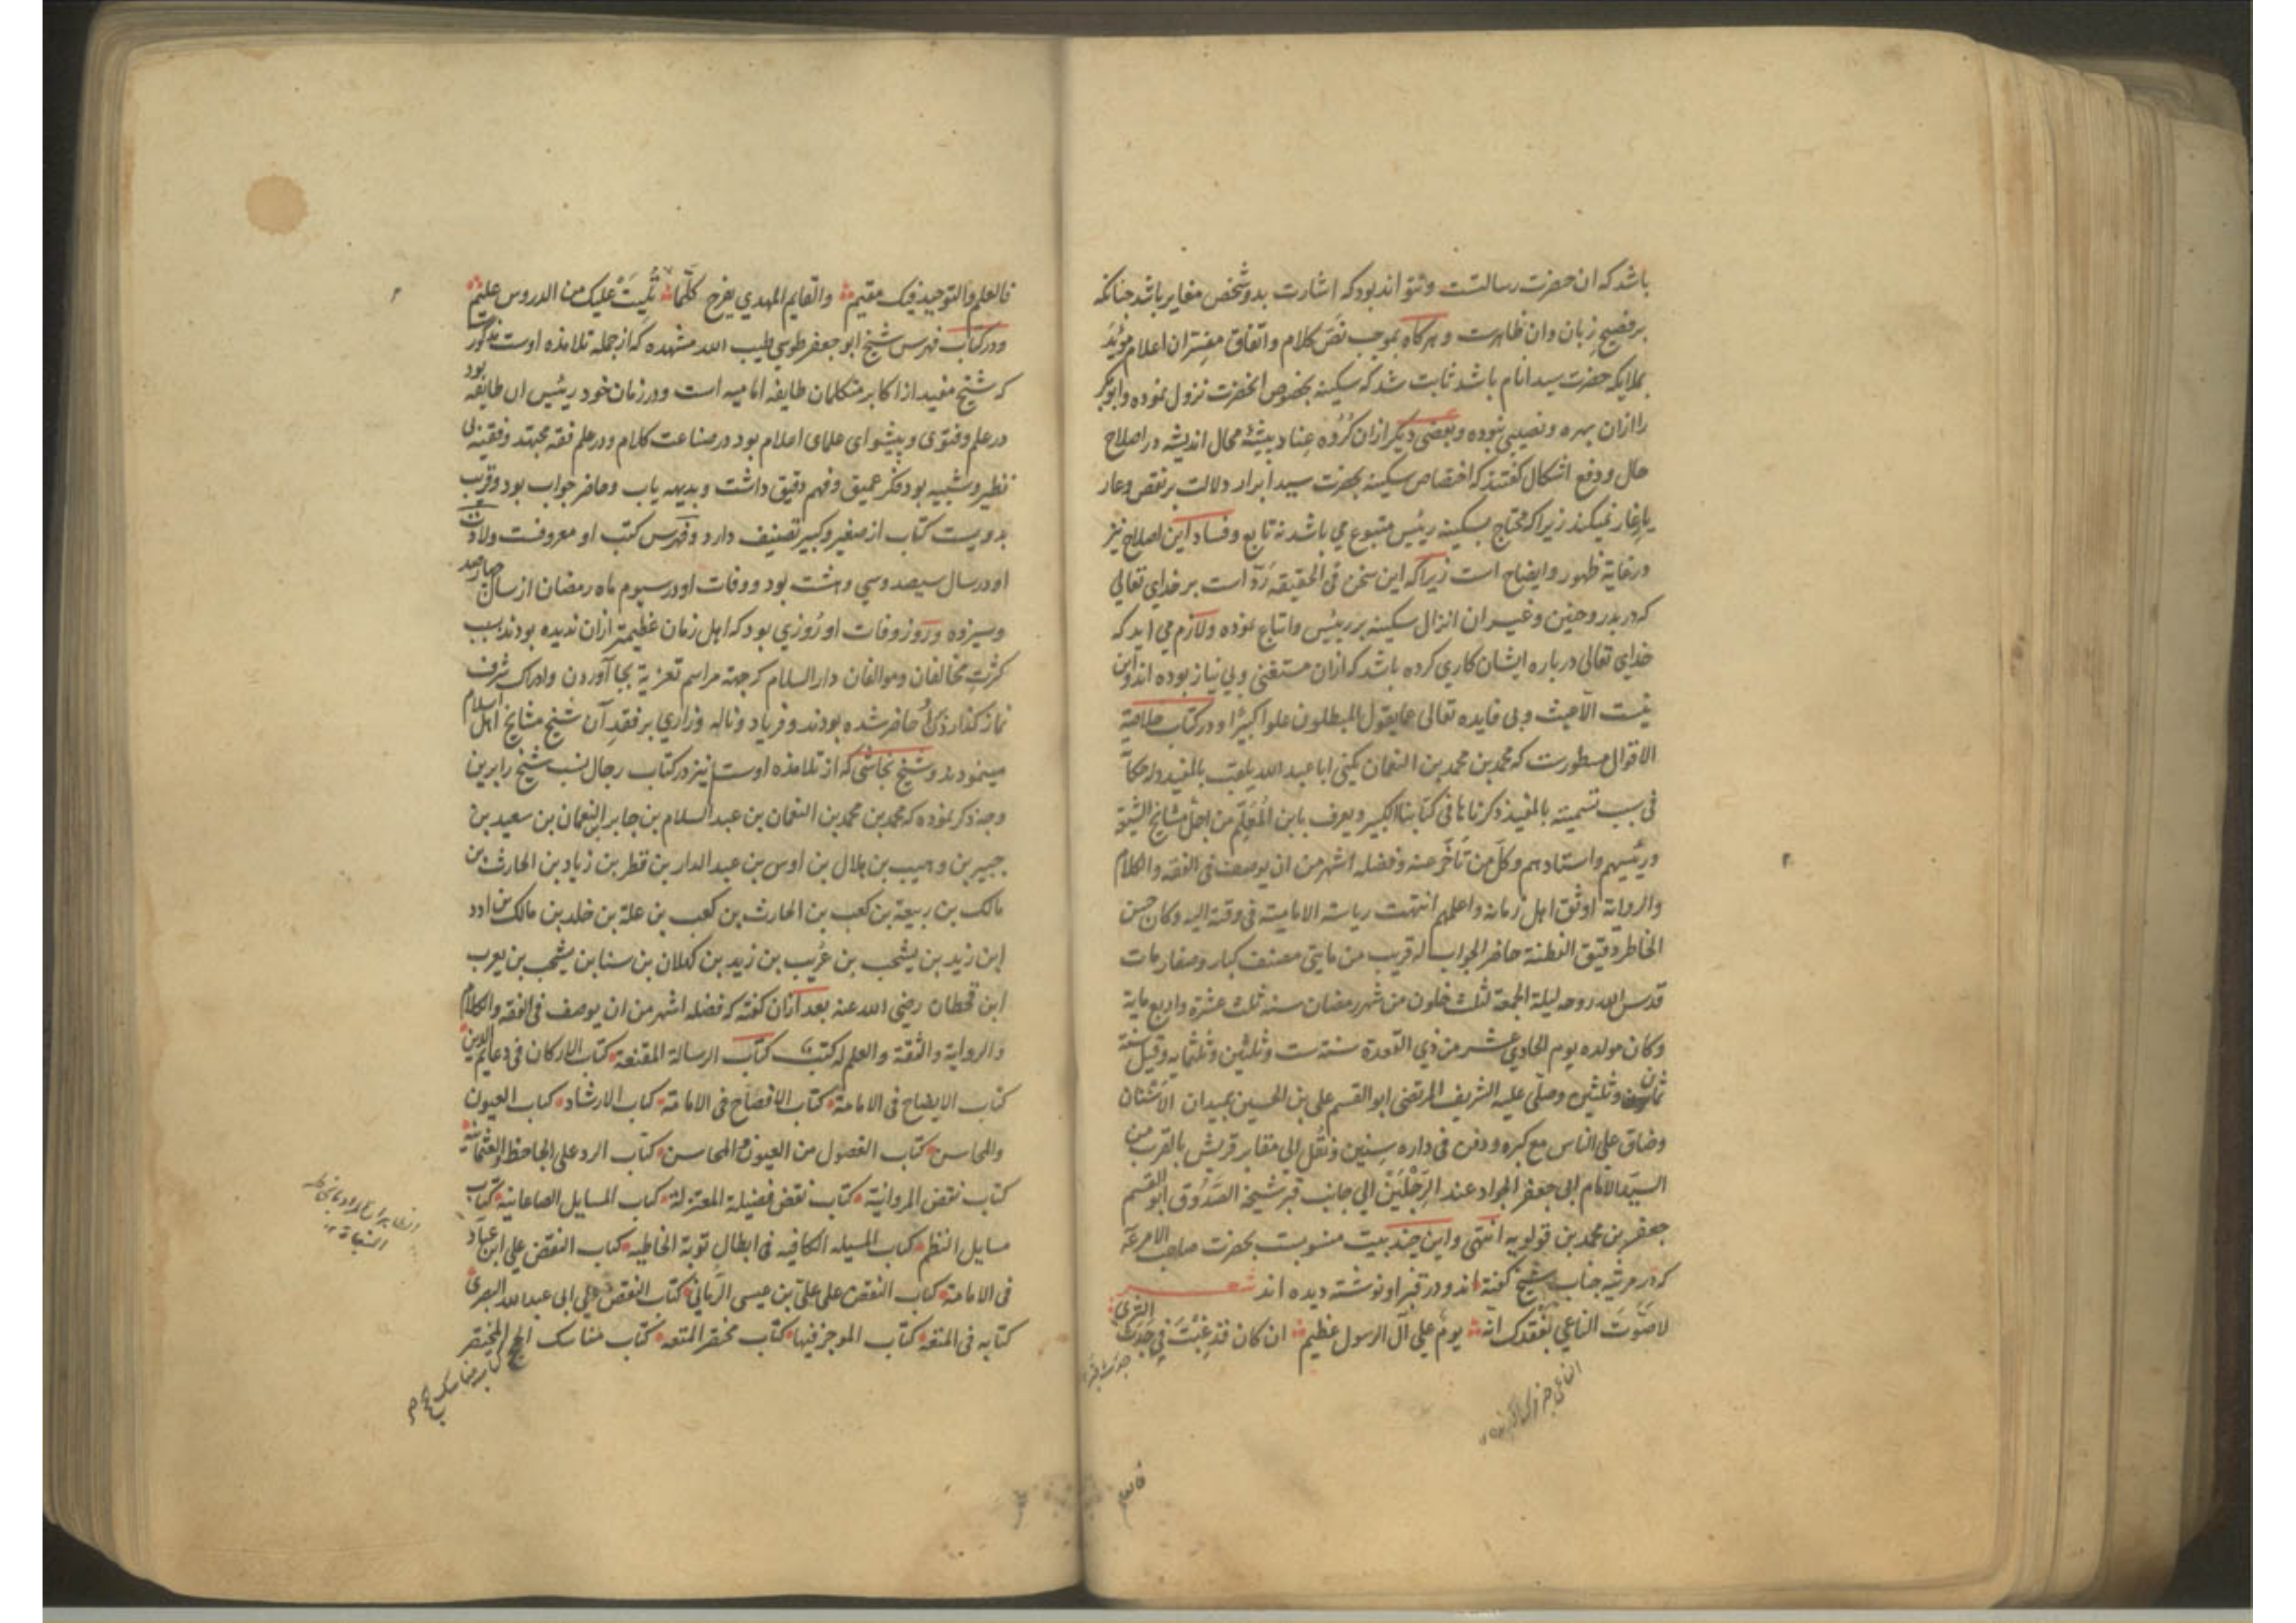 باشد که ان حضرت رسالتست و نتواند بود که اشارت بدو شخص مغایر باشد چنانکه
بر فصیح زبان دان ظاهرست و هرکاه بموجب نص کلام و اتفاق مفسران اعلام موید
بملایکه حضرت سید انام باشد ثابت شد که سکینه بخصوص انحضرت نزول نموده و ابوبکر
را ازان بهره و نصیبی نبوده و بعضی دیگر ازان کروه عناد پیشهٔ محال اندیشه در اصلاح
حال و دفع اشکال گفتند که اختصاص سکینه بحضرت سید ابرار دلالت بر نقص و عار
یار غار نمیکند زیرا که محتاج بسکینه رئیس متبوع می باشد نه تابع و فساد این اصلاح نیز
در غایة ظهور و ایضاح است زیرا که این سخن فی الحقیقه رد است بر خدای تعالی
که در بدر و حنین و غیر ان انزال سکینه بر رئیس و اتباع نموده و لازم می اید که
خدای تعالی درباره ایشان کاری کرده باشد که ازان مستغنی و بی نیاز بوده اند و این
نیست الا عبث و بی فایده تعالی عما یقول المبطلون علوا کبیرا و در کتاب خلاصة
الاقوال مسطورست که محمد بن محمد بن النعمان یکنی ابا عبد الله یلقب بالمفید وله حکایة
فی سبب تسمیته بالمفید ذکرناها فی کتابنا الکبیر و یعرف بابن المعلم من اجل مشایخ الشیعة
و رئیسهم و استادهم و کل من تاخر عنه و فضله اشهر من ان یوصف فی الفقه و الکلام
و الروایة اوثق اهل زمانه و اعلمهم انتهت ریاسة الامامیة فی وقته الیه و کان حسن
الخاطر دقیق الفطنة حاضر الجواب له قریب من مایتی مصنف کبار و صغار مات
قدس الله روحه لیلة الجمعة لثلث خلون من شهر رمضان سنة ثلث عشرة و اربع مایة
و کان مولده یوم الحادی عشر من ذی القعدة سنة ست و ثلثین و ثلثمایه و قیل سنة
ثمان و ثلثین و صلی علیه الشریف المرتضی ابو القسم علی بن الحسین بمیدان الاشنان
و ضاق علی الناس مع کبره و دفن فی داره سنین و نقل الی مقابر قریش بالقرب من
السید الامام ابی جعفر الجواد عند الرجلین الی جانب قبر شیخه الصدوق ابو القسم
جعفر بن محمد بن قولویه انتهی و این چند بیت منسوبست بحضرت صاحب الامر
که در مرثیه جناب شیخ گفته اند و در قبر او نوشته دیده اند شعر
لا صوت الناعی بفقدک انه یوم علی آل الرسول عظیم ان کان قد غبت فی جدث الثری
فالعلم
فالعلم و التوحید فیک مقیم و القایم المهدی یفرح کلما تلیت علیک من الدروس علیم
و در کتاب فهرس شیخ ابو جعفر طوسی طیب الله مشهده که از جمله تلامذه اوست مذکورست
که شیخ مفید از اکابر متکلمان طایفه امامیه است و در زمان خود رئیس ان طایفه بود
در علم و فتوی و پیشوای علمای اعلام بود در صناعت کلام و در علم فقه مجتهد و فقیه بی
نظیر و شبیه بود فکر عمیق و فهم دقیق داشت و بدیهه یاب و حاضر جواب بود و قریب
بدویست کتاب از صغیر و کبیر تصنیف دارد و فهرس کتب او معروفست ولادت
او در سال سیصد و سی و هشت بود و وفات او در سیوم ماه رمضان از سال چهارصد
و سیزده و روز وفات او روزی بود که اهل زمان عظیمتر ازان ندیده بودند بسبب
کثرت مخالفان و موالفان دار السلام که جهة مراسم تعزیة بجا آوردن و ادراک شرف
نماز کذاردن حاضر شده بودند و فریاد و ناله و زاری بر فقد آن شیخ مشایخ اهل اسلام
مینمودند و شیخ نجاشی که از تلامذه اوست نیز در کتاب رجال نسب شیخ را برین
وجه ذکر نموده که محمد بن محمد بن النعمان بن عبد السلام بن جابر بن النعمان بن سعید بن
جبیر بن وهیب بن هلال بن اوس بن عبد الدار بن قطر بن زیاد بن الحارث بن
مالک بن ربیعة بن کعب بن الحارث بن کعب بن علة بن خلد بن مالک بن ادد
ابن زید بن یشجب بن عریب بن زید بن کهلان بن سبا بن یشجب بن یعرب
ابن قحطان رضی الله عنه بعد ازان گفته که فضله اشهر من ان یوصف فی الفقه و الکلام
و الروایة و الثقة و العلم له کتب کتاب الرسالة المقنعة کتاب الارکان فی دعایم الدین
کتاب الایضاح فی الامامة کتاب الافصاح فی الامامة کتاب الارشاد کتاب العیون
و المحاسن کتاب الفصول من العیون و المحاسن کتاب الرد علی الجاحظ و العثمانیة
کتاب نقض المروانیة کتاب نقض فضیلة المعتزلة کتاب المسایل الصاغانیة کتاب
مسایل النظم کتاب المسیله الکافیه فی ابطال توبة الخاطیه کتاب النقض علی ابن عباد
فی الامامة کتاب النقض علی علی بن عیسی الرمانی کتاب النقض علی ابی عبد الله البصری
کتابه فی المتعة کتاب الموجز فیها کتاب مختصر المتعه کتاب مناسک الحج المختصر